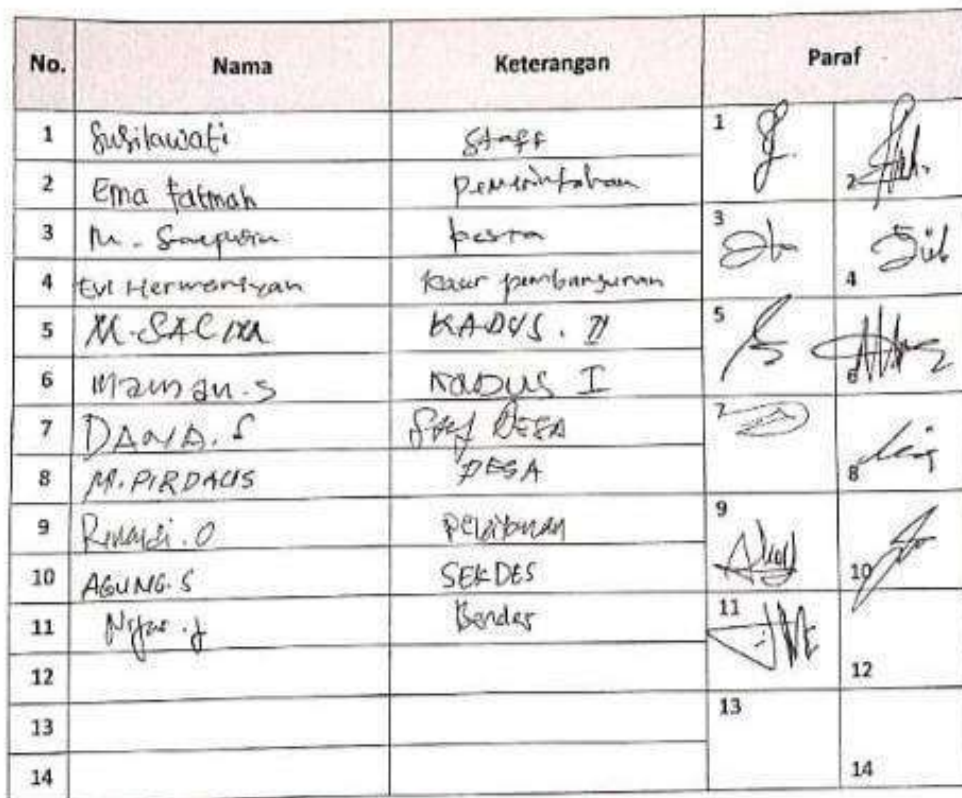 No. Nama Keterangan Paraf
1 Susilawati Staff 1
2 Ema Fatmah pemerintahan 2
3 M. Saepudin kesra 3
4 Evi Hermeriyan Kaur pembangunan 4
5 M. SACIM KADUS. II 5
6 Maman.S KADUS I 6
7 DANA. S Staf DESA 7
8 M. PIRDAUS DESA 8
9 9
10 AGUNG. S SEKDES 10
11 Bendes 11
12 12
13 13
14 14